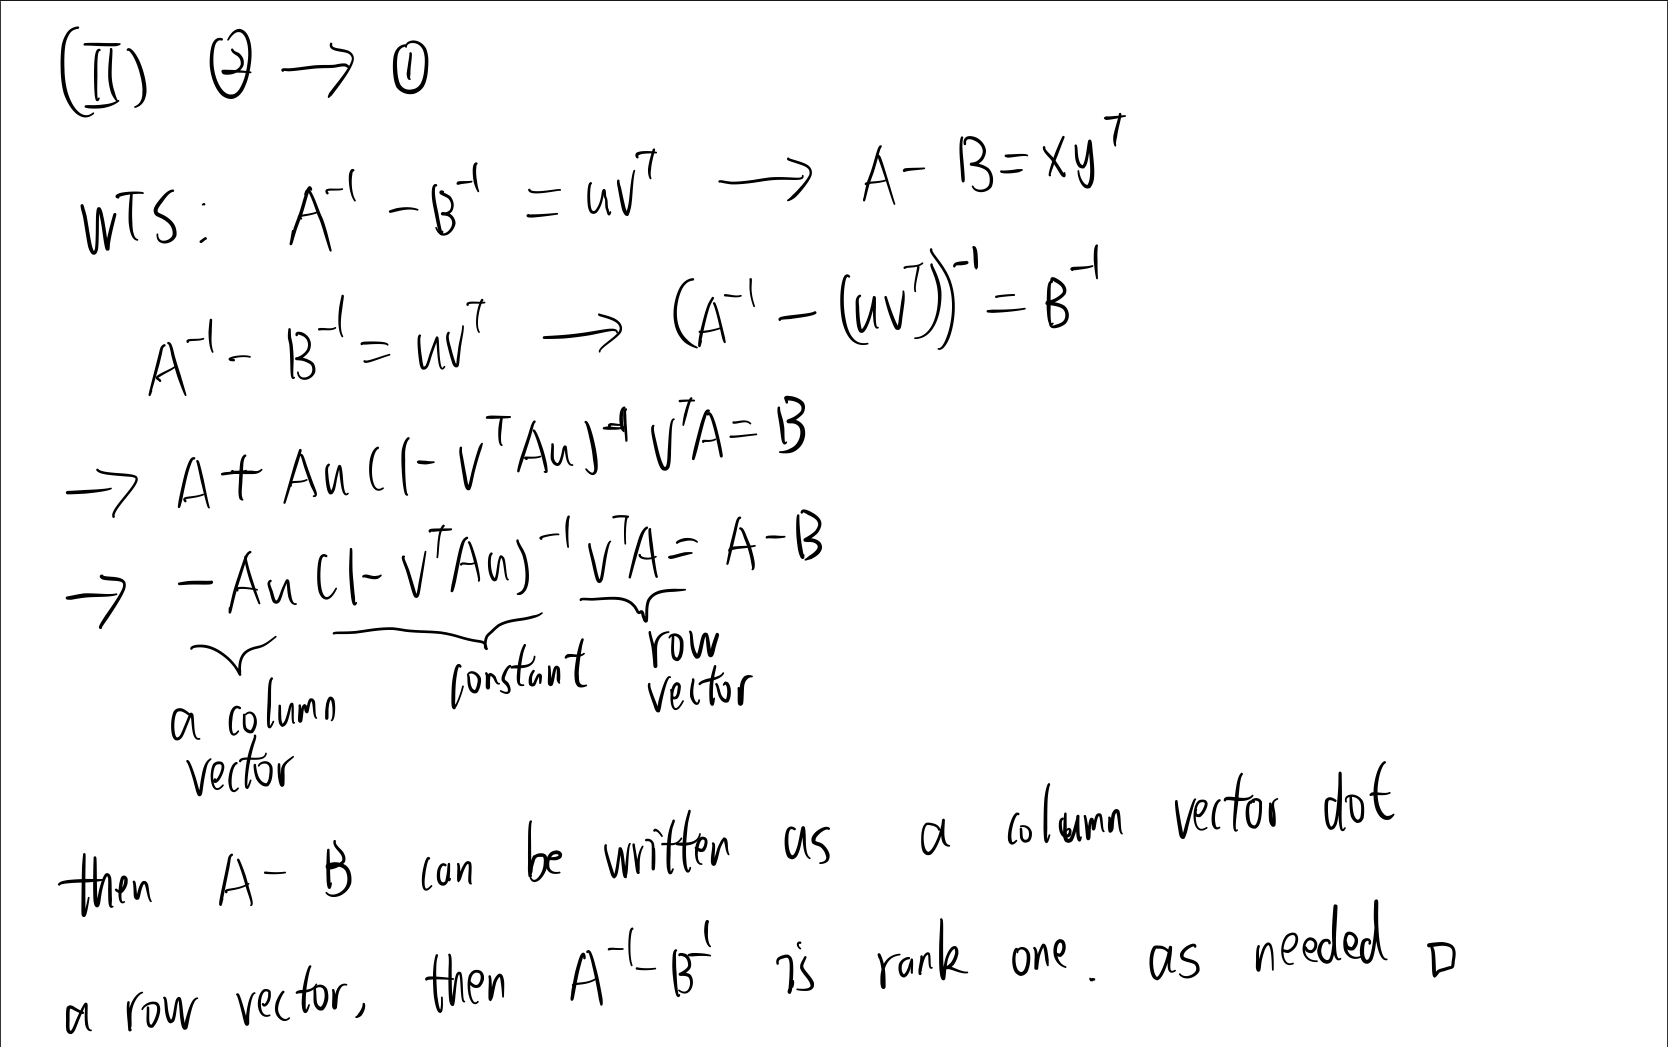 (II) ② → ①
WTS: A⁻¹ - B⁻¹ = uvᵀ → A - B = xyᵀ
A⁻¹ - B⁻¹ = uvᵀ → (A⁻¹ - (uvᵀ))⁻¹ = B⁻¹
→ A + Au(1 - vᵀAu)⁻¹ vᵀA = B
→ -Au(1 - vᵀAu)⁻¹ vᵀA = A - B
a column vector
constant
row vector
then A - B can be written as a column vector dot
a row vector, then A⁻¹ - B⁻¹ is rank one. as needed □